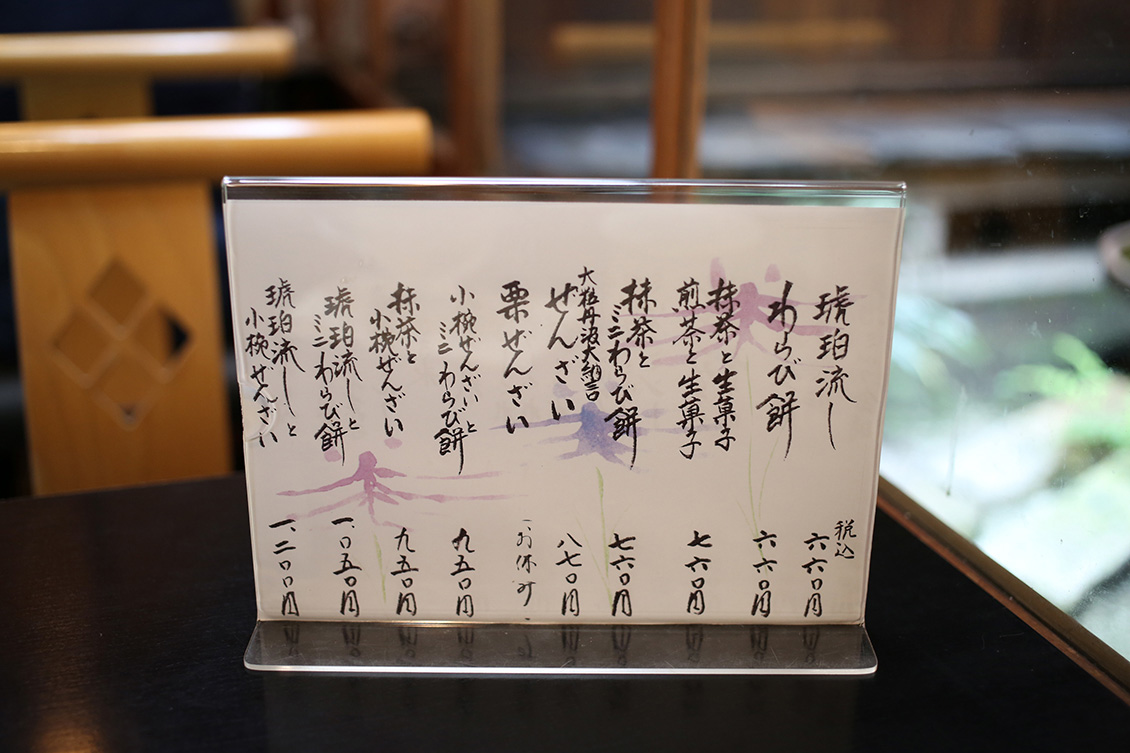 琥珀流し
税込
六六〇円
わらび餅
六六〇円
抹茶と生菓子
煎茶と生菓子
七六〇円
抹茶と
ミニわらび餅
七六〇円
大粒丹波大納言
ぜんざい
八七〇円
栗ぜんざい
お休み
小椀ぜんざいと
ミニわらび餅
九五〇円
抹茶と
小椀ぜんざい
九五〇円
琥珀流しと
ミニわらび餅
一、〇五〇円
琥珀流しと
小椀ぜんざい
一、二〇〇円